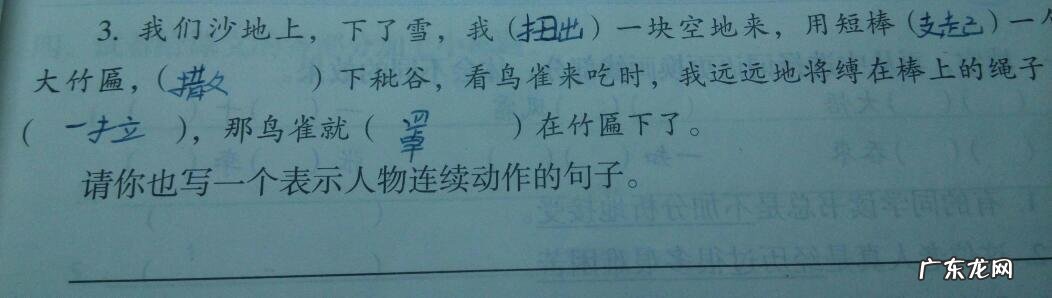 3. 我们沙地上，下了雪，我（扭出）一块空地来，用短棒（支起）一个
大竹匾，（撒　　）下秕谷，看鸟雀来吃时，我远远地将缚在棒上的绳子
（一拉　），那鸟雀就（罩　　）在竹匾下了。
请你也写一个表示人物连续动作的句子。
广东龙网